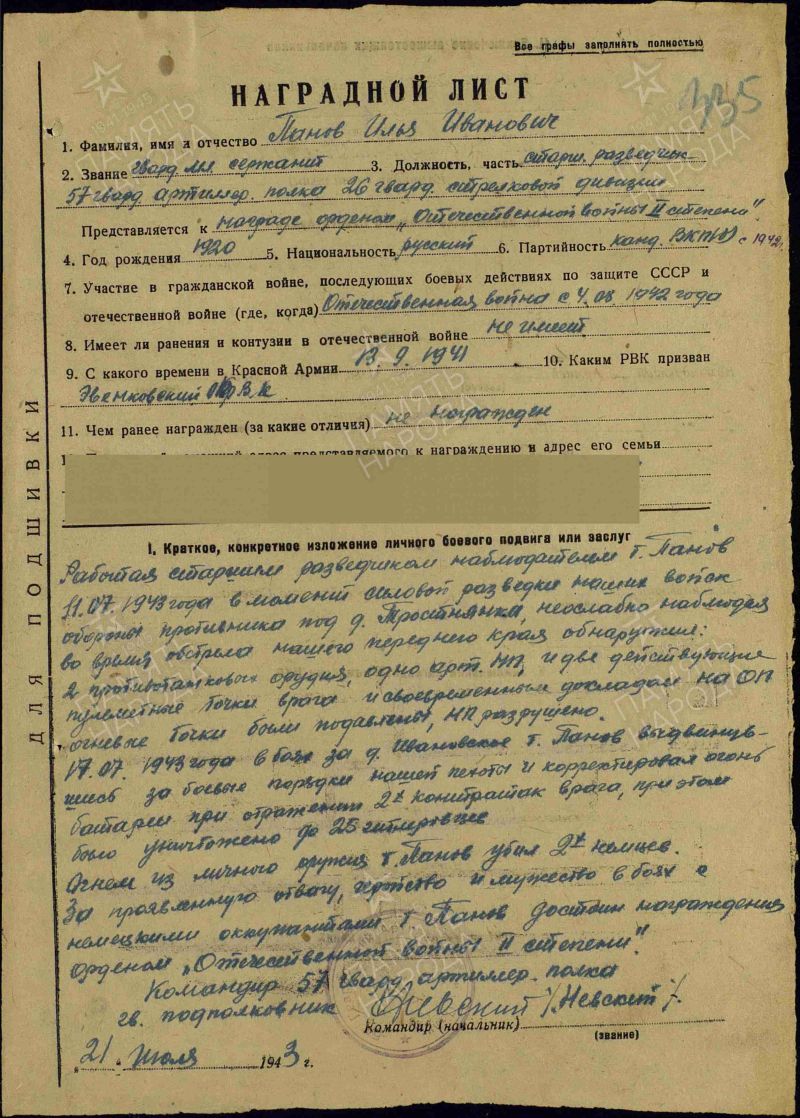 Все графы заполнять полностью
335
НАГРАДНОЙ ЛИСТ
1. Фамилия, имя и отчество Панов Илья Иванович
2. Звание гвард. мл. сержант 3. Должность, часть старш. разведчик
57 гвард. артиллер. полка 26 гвард. стрелковой дивизии
Представляется к награде орденом „Отечественной войны II степени".
4. Год рождения 1920 5. Национальность русский 6. Партийность канд. ВКП(б) с 1942г.
7. Участие в гражданской войне, последующих боевых действиях по защите СССР и
отечественной войне (где, когда) Отечественная война с 4.08 1942 года
8. Имеет ли ранения и контузии в отечественной войне не имеет
9. С какого времени в Красной Армии 13.9.1941 10. Каким РВК призван
Эвенковский
11. Чем ранее награжден (за какие отличия) не награжден
представляемого к награждению и адрес его семьи
ДЛЯ ПОДШИВКИ
I. Краткое, конкретное изложение личного боевого подвига или заслуг
Работая старшим разведчиком наблюдателем т. Панов
11.07.1943 года в момент силовой разведки наших войск
обороны противника под д. Тростнянка, неослабно наблюдая
во время обстрела нашего переднего края обнаружил:
2 противотанковых орудия, одно арт. НП, и две действующие
пулеметные точки врага и своевременным докладом на ОП
огневые точки были подавлены, НП разрушено.
17.07.1943 года в боях за д. Ивановское т. Панов выдвинув-
шись за боевые порядки нашей пехоты и корректировал огонь
батареи при отражении 2х контратак врага, при этом
было уничтожено до 25 гитлеровцев
Огнем из личного оружия т. Панов убил 2х немцев.
За проявленную отвагу, геройство и мужество в боях с
немецкими оккупантами т Панов достоин награждения
орденом „Отечественной войны II степени".
Командир 57 гвард. артиллер. полка
гв. подполковник Невский /Невский/.
Командир (начальник)
(звание)
„21" июля 1943 г.
ПАМЯТЬ НАРОДА